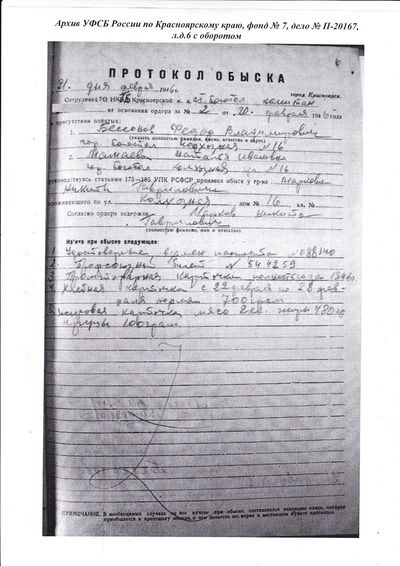 Архив УФСБ России по Красноярскому краю, фонд № 7, дело № П-20167,
л.д.6 с оборотом
6
ПРОТОКОЛ ОБЫСКА
21. дня февраля 1946 г. город Красноярск.
Сотрудник ТО НКГБ Красноярской ж. д. ст. Боготол капитан
на основании ордера за № 2 от 20 февраля 1946 года
в присутствии понятых:
1. Бессонов Федор Владимирович
(указать полностью фамилии, имена, отчества и адрес)
гор. Боготол колхозная № 16
2. Наталья Ивановна
гор. Боготол колхозная ул. № 16
руководствуясь статьями 175—185 УПК РСФСР произвел обыск у гр-на Маркович
Никиты Гавриловича
проживающего по ул. Колхозная дом № 16 кв. №
Согласно ордера задержан Марков Никита
Гаврилович
(полностью фамилия, имя и отчество)
Изъято при обыске следующее:
1. Удостоверение взамен паспорта №
2. Профсоюзный билет № 544259
3. карточка 1946 г.
4. Хлебная карточка с 22 февраля по 28 фев-
раля нормы 700 грам
5. карточка мясо 2 кг. жиры 480 гр
крупы 100 грам.
ПРИМЕЧАНИЕ. В необходимых случаях на все изятое при обыске составляется отдельная опись, которая
приобщается к протоколу обыска, о чем делается оговорка в настоящем пункте протокола.